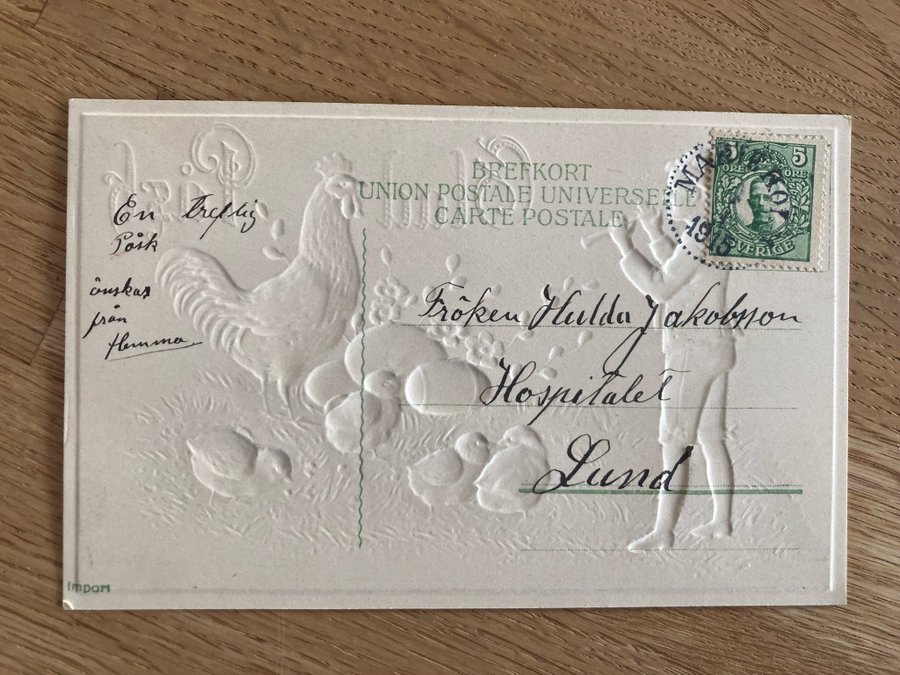 BREFKORT
UNION POSTALE UNIVERSELLE
CARTE POSTALE
5 5
ÖRE ÖRE
SVERIGE
1915
En treflig
Påsk
önskas
från
Hemma
Fröken Hulda Jakobsson
Hospitalet
Lund
Import